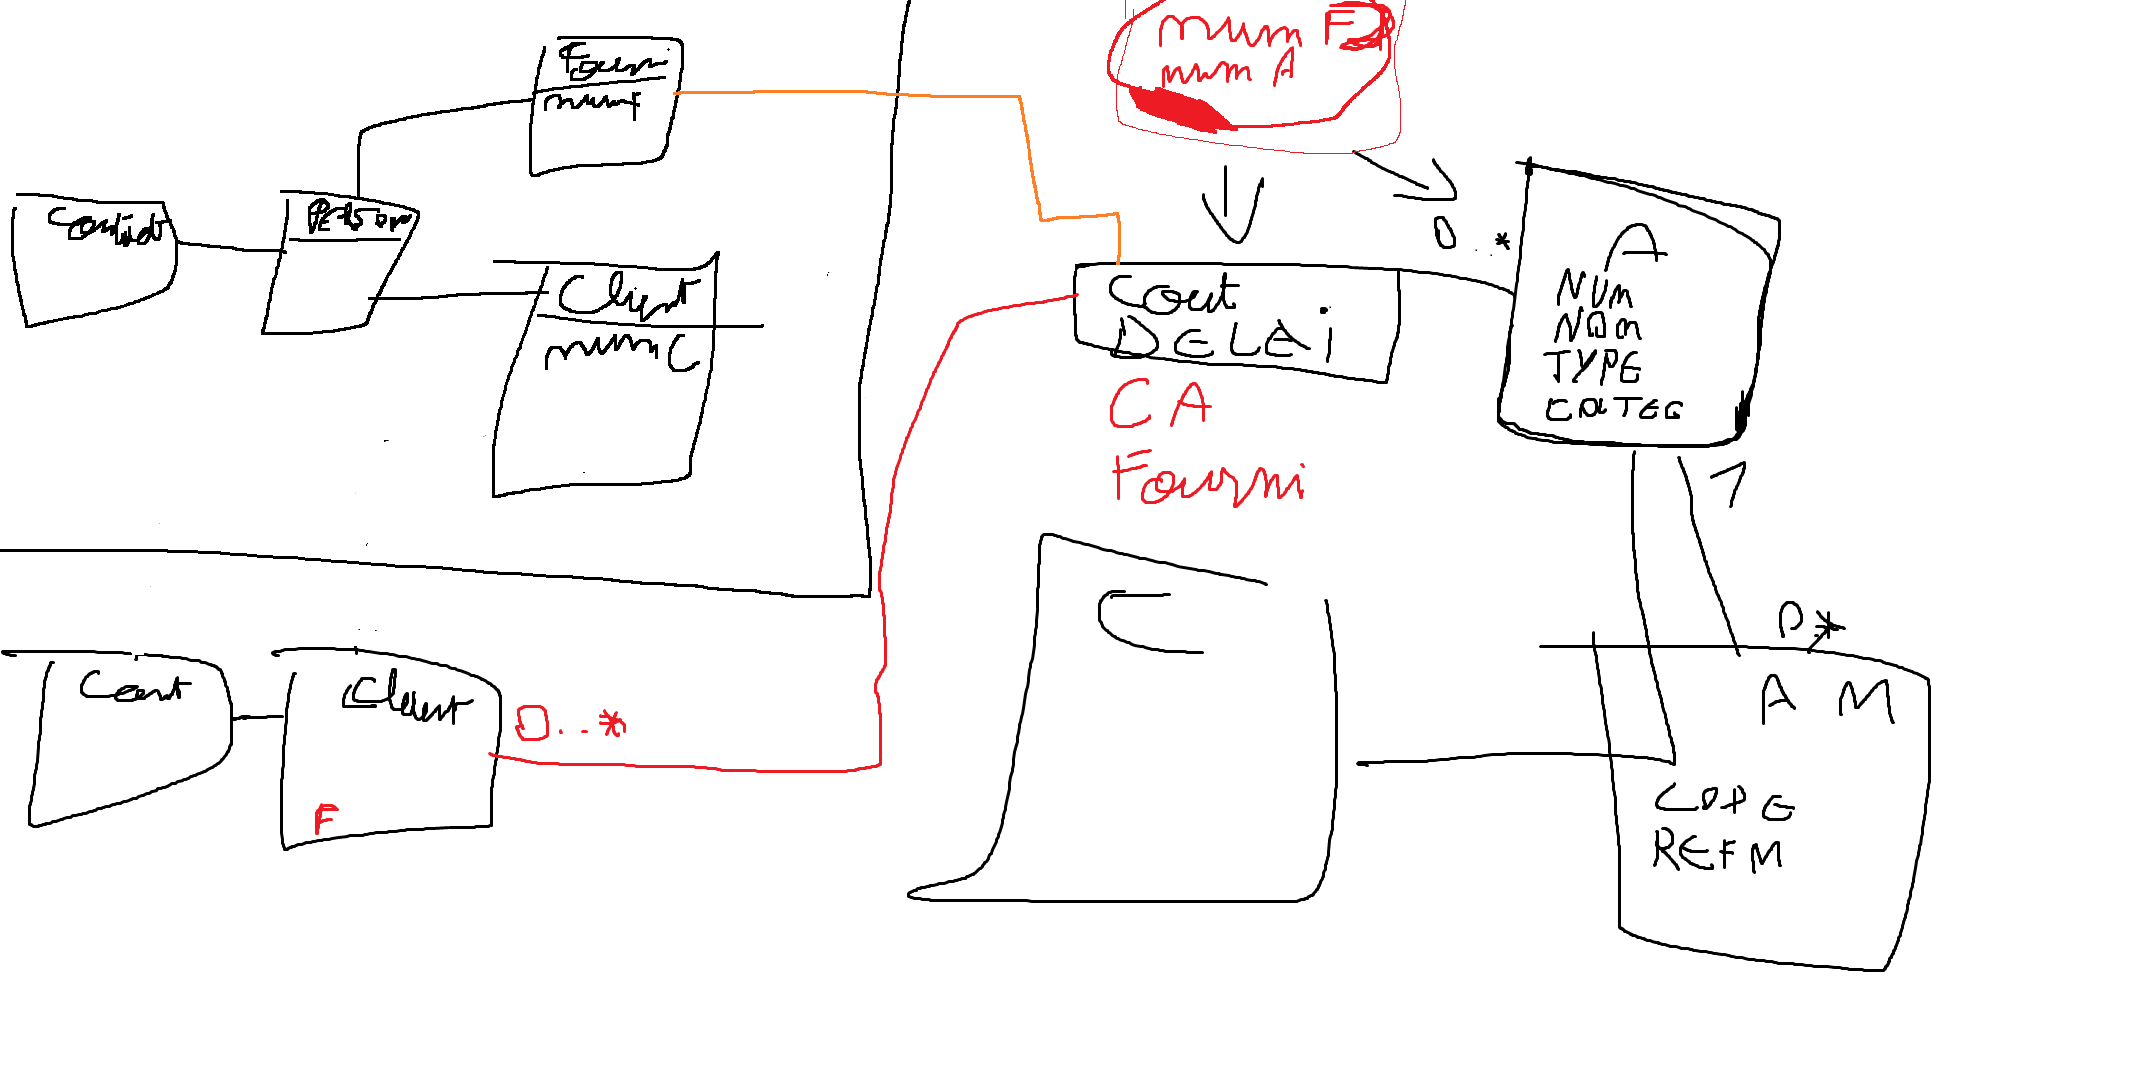 Fourn
numF
num F
num A
Contact
Person
Client
num C
0..*
Cout
DELAi
CA
Fourni
A
NUM
NOM
TYPE
CATEG
1
C
0*
A M
CODE
REFM
Client
0..*
F